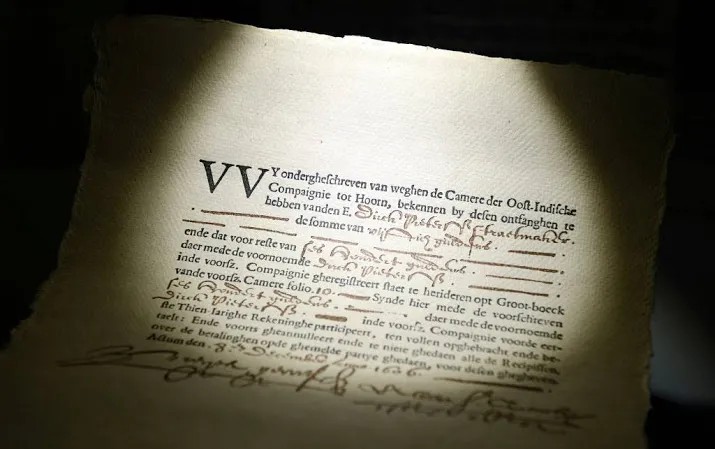 VVY ondergheſchreven van weghen de Camere der Ooſt-Indiſche
Compaignie tot Hoorn, bekennen by deſen ontfanghen te
hebben vanden E. Dirck Pietersz Straetmaker.
de ſomme van
ende dat voor reſte van ses hondert guldens
daer mede de voornoemde dirck Pietersz.
inde voorſz. Compaignie gheregiſtreert ſtaet te herideren opt Groot-boeck
vande voorſz. Camere folio. 10. Synde hier mede de voorſchreven
ses hondert guldens. daer mede de voornoemde
dirck Pietersz. inde voorſz. Compaignie voorde eer-
ſte Thien-Iarighe Rekeninghe participeert, ten vollen opghebracht ende be-
taelt: Ende voorts gheannulleert ende te niete ghedaen alle de Recipiſſen,
over de betalinghen opde ghemelde partye ghedaen, voor deſen ghegheven.
Actum den 9. December anno 1606.